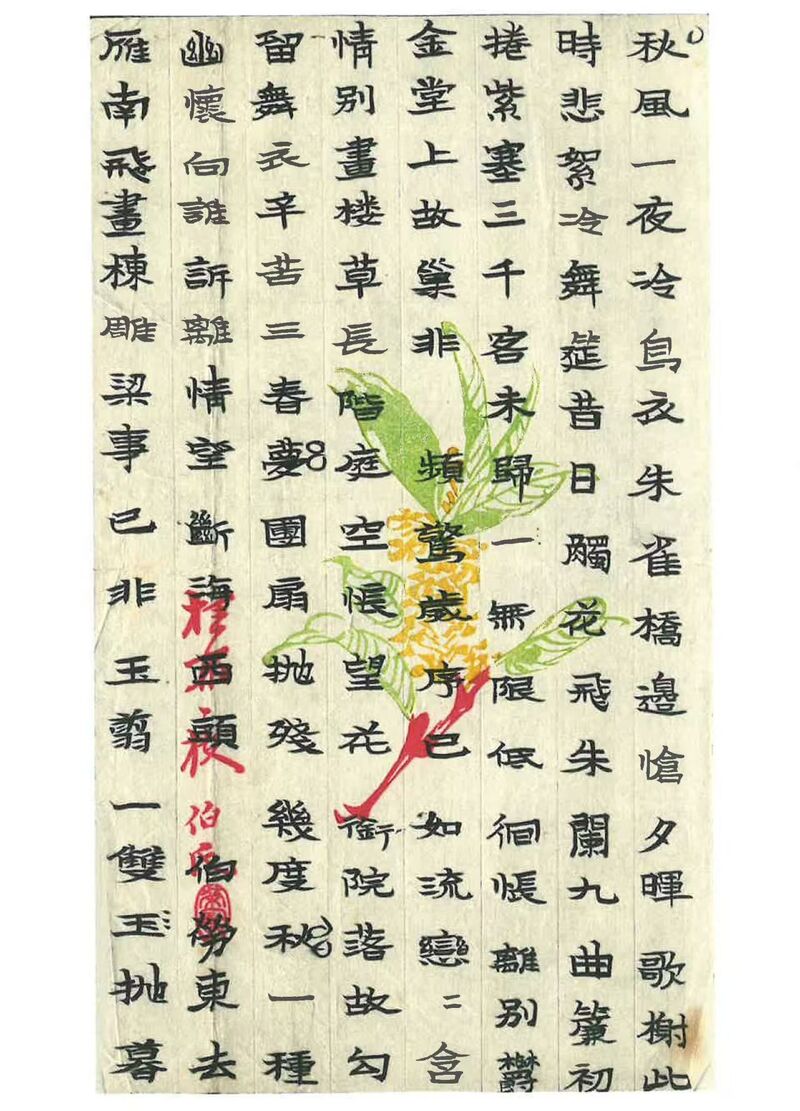 秋風一夜冷烏衣朱雀橋邊愴夕暉歌榭此
時悲絮冷舞筵昔日觸花飛朱闌九曲簾初
捲紫塞三千客未歸一無限低徊悵離別鬱
金堂上故巢非頻驚歲序已如流戀〻含
情別畫楼草長階庭空悵望花銜院落故勾
留舞衣辛苦三春夢團扇抛殘幾度秋一種
幽懷向誰訴離情望斷海西頭伯勞東去
雁南飛畫棟雕梁事已非玉翦一雙玉抛暮